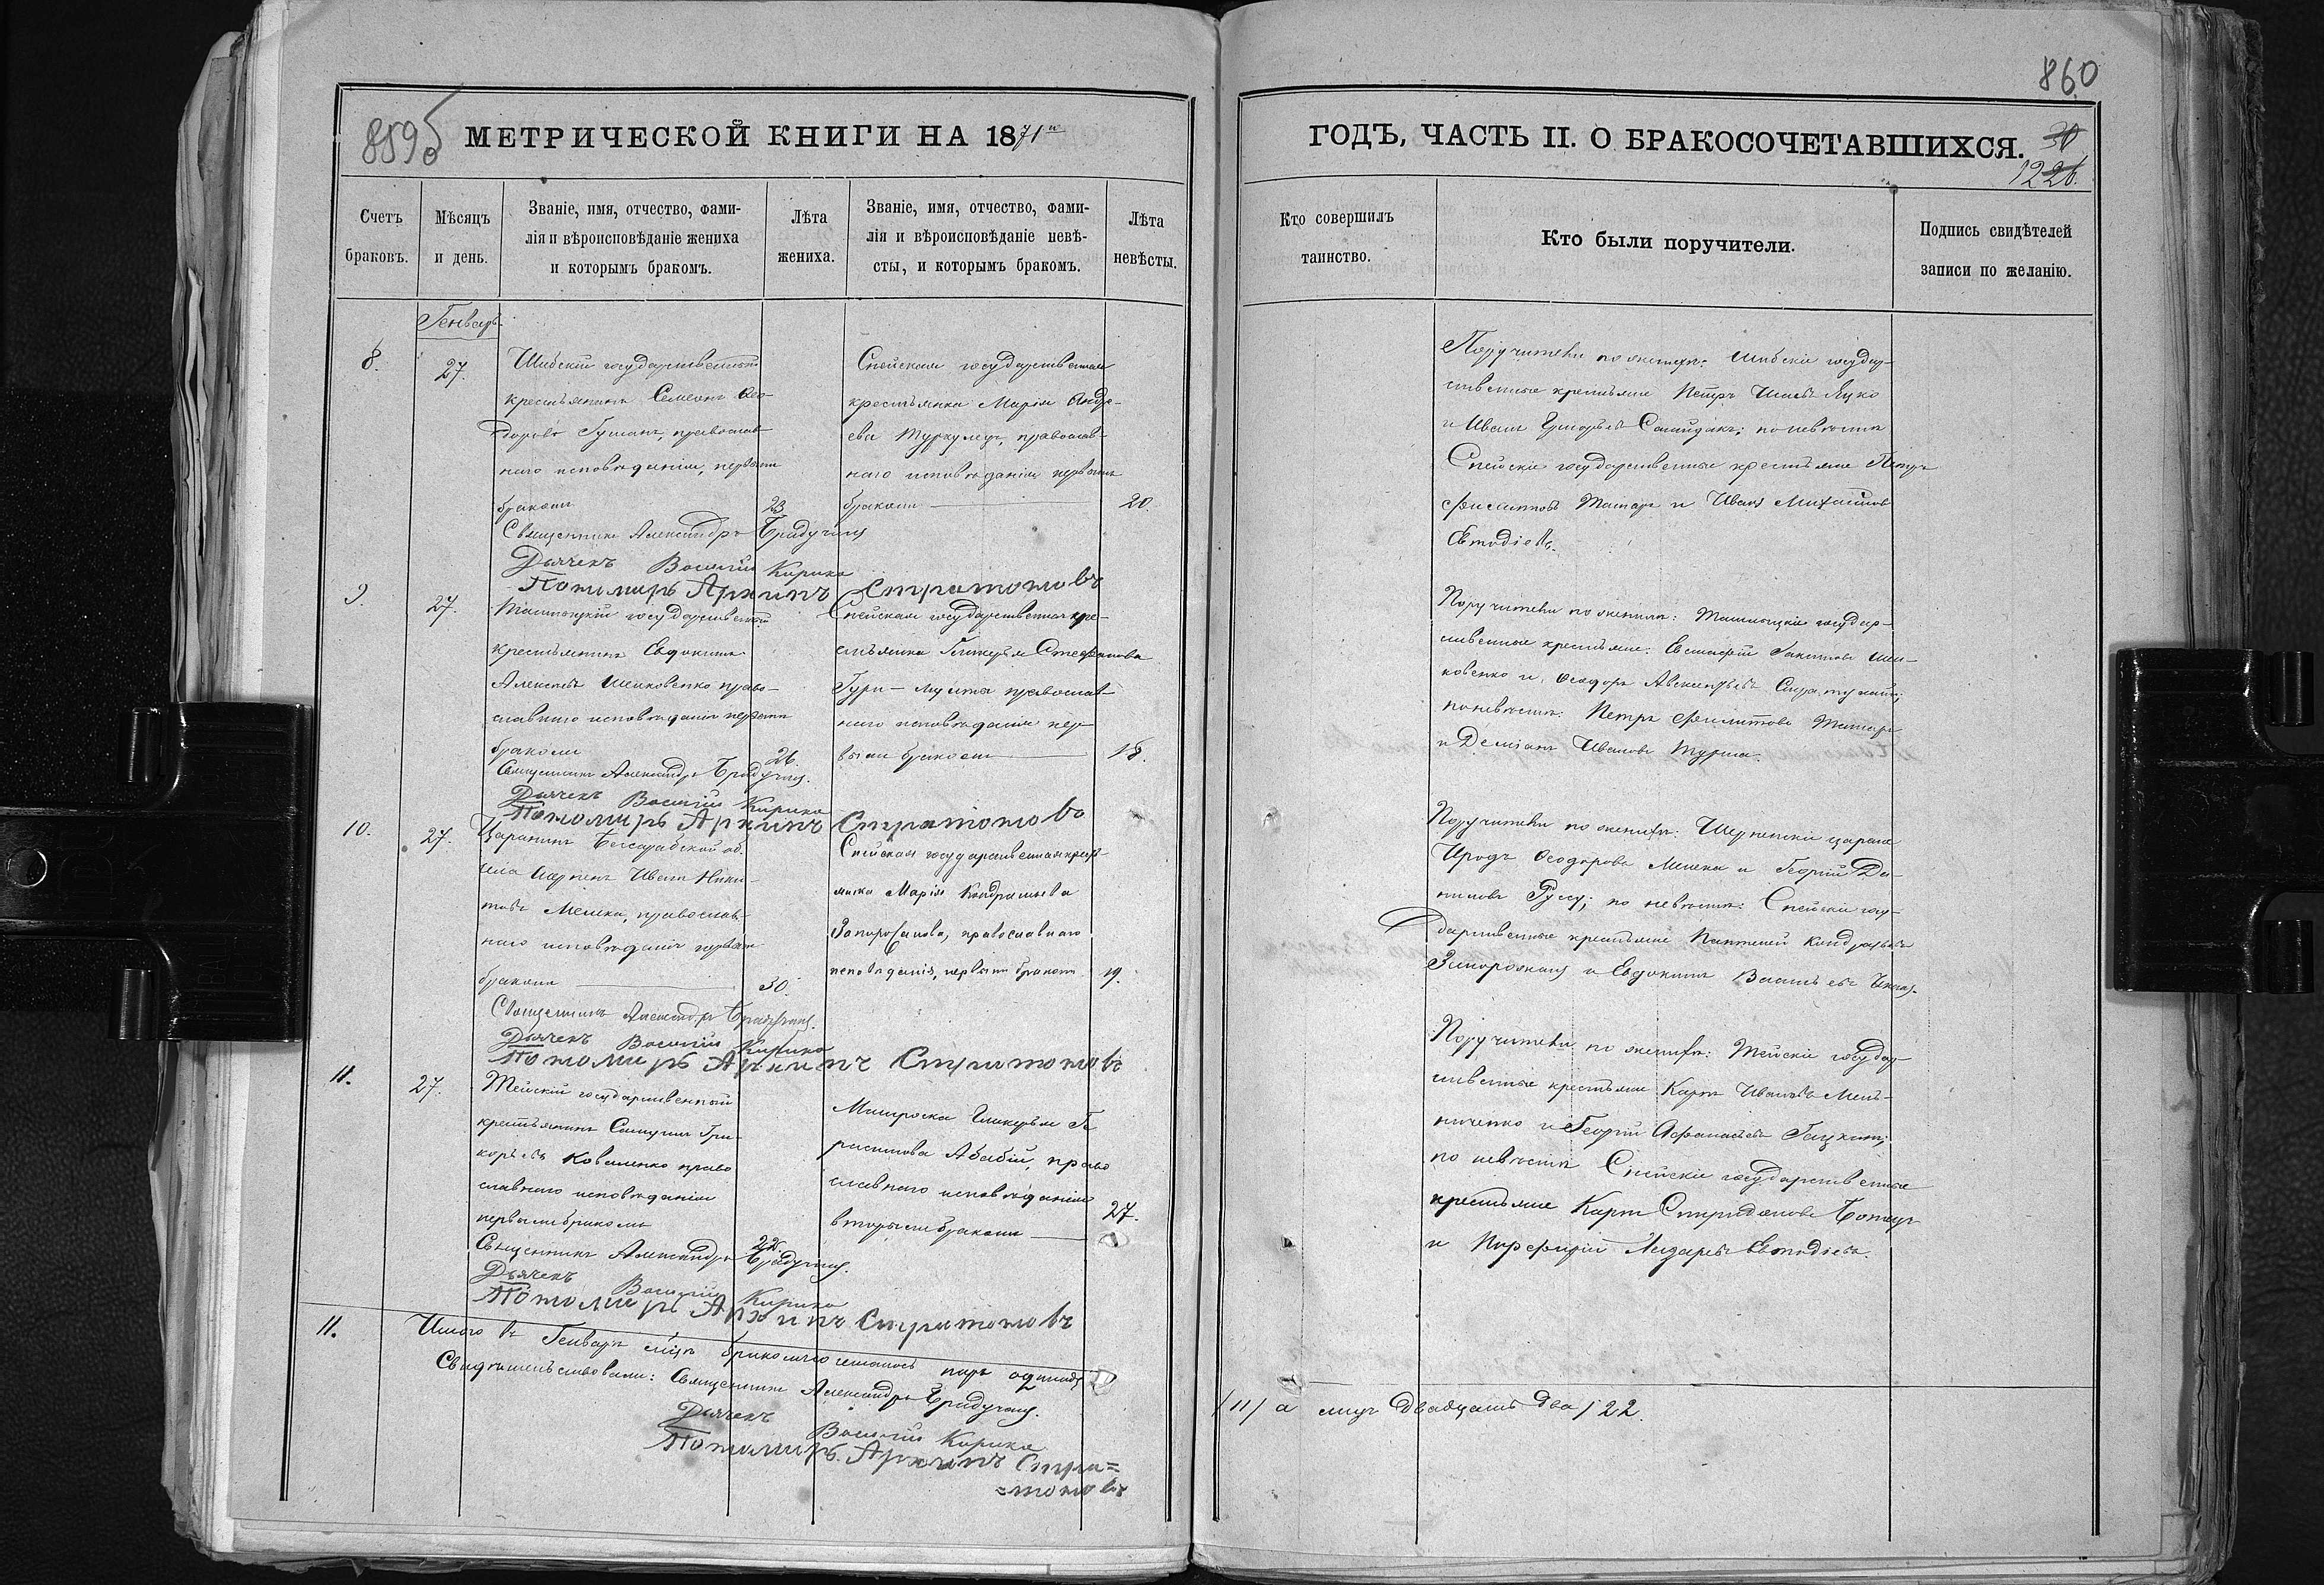 859б
МЕТРИЧЕСКОЙ КНИГИ НА 1871й
Счетъ браковъ.
Мѣсяцъ и день.
Званіе, имя, отчество, фами-
лія и вѣроисповѣданіе жениха
и которымъ бракомъ.
Лѣта жениха.
Званіе, имя, отчество, фами-
лія и вѣроисповѣданіе невѣ-
сты, и которымъ бракомъ.
Лѣта невѣсты.
Генварь.
8.
27.
Шибскій государственный
крестьянинъ Семеонъ Ѳео-
доровъ Гуманъ, православ-
наго исповѣданія, первымъ
бракомъ
23
Спейская государственная
крестьянка Марія Андре-
ева Туркулецъ, православ-
наго исповѣданія первымъ
бракомъ
20.
Священникъ Александръ
Дьячекъ Василій Кирика
Пономарь Архипъ Стратоновъ
9.
27.
государственный
крестьянинъ Евдокимъ
Алексѣевъ Шенковенко право-
славнаго исповѣданія первымъ
бракомъ
26.
Спейская государственная кре-
стьянка Гликерья Стефанова
Гури-Мунта православ-
наго исповѣданія пер-
вымъ бракомъ
18.
Священникъ Александръ
Дьячекъ Василій Кирика
Пономарь Архипъ Стратоновъ
10.
27.
Царанинъ Бессарабской об.
села Шерпенъ Иванъ Ники-
товъ Мешка, православ-
наго исповѣданія первымъ
бракомъ
30.
Спейская государственная кресть-
янка Марія Кондратьева
Запорожанова, православнаго
исповѣданія, первымъ бракомъ
19.
Священникъ Александръ
Дьячекъ Василій Кирика
Пономарь Архипъ Стратоновъ
11.
27.
Тейскій государственный
крестьянинъ Самуилъ Гри-
горьевъ Коваленко право
славнаго исповѣданія
первымъ бракомъ
22.
Гликерья Ге
расимова Абабій, право
славнаго исповѣданія
вторымъ бракомъ
27.
Священникъ Александръ
Дьячекъ Василій Кирика
Пономарь Архипъ Стратоновъ
11.
Итого въ Генварѣ мѣцѣ бракомъ сочеталось паръ одинадц
Свидѣтельствовали: Священникъ Александръ
Дьячекъ Василій Кирика
Пономарь Архипъ Стра=
=тоновъ
860
ГОДЪ, ЧАСТЬ II. О БРАКОСОЧЕТАВШИХСЯ.
30
1226.
Кто совершилъ таинство.
Кто были поручители.
Подпись свидѣтелей записи по желанію.
Поручители по женихѣ: Шибскіе государ-
ственные крестьяне Петръ Яцко
и Иванъ Григорьевъ Самйдакъ; по невѣстѣ
Спейскіе государственные крестьяне Петръ
Филиповъ Татаръ и Иванъ Михайловъ
Евтодіевъ.
Поручители по женихѣ: государ-
ственные крестьяне: Евстафій Шен-
ковенко и Ѳеодоръ
по невѣстѣ: Петръ Филиповъ Татаръ
и Деміанъ Ивановъ Мурга.
Поручители по женихѣ: Шерпенскіе царане
Иродъ Ѳеодоровъ Мешка и Георгій Да-
ниловъ Руссу; по невѣстѣ: Спейскіе госу-
дарственные крестьяне Пантелей Кондратьевъ
Запорожанъ и Евдокимъ Васильевъ
Поручители по женихѣ: Тейскіе государ-
ственные крестьяне Карпъ Ивановъ Мель-
ниченко и Георгій Афанасьевъ Гацканъ;
по невѣстѣ Спейскіе государственные
крестьяне Карпъ Спиридоновъ Ботнар
и Порфирій Лазаревъ Евтодіевъ.
/11/ а лицъ двадцать два /22.